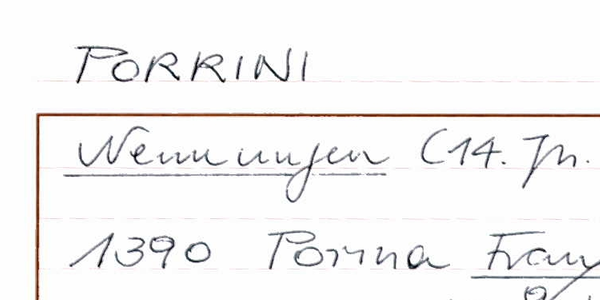 PORRINI
Nennungen (14. Jh.
1390 Porina